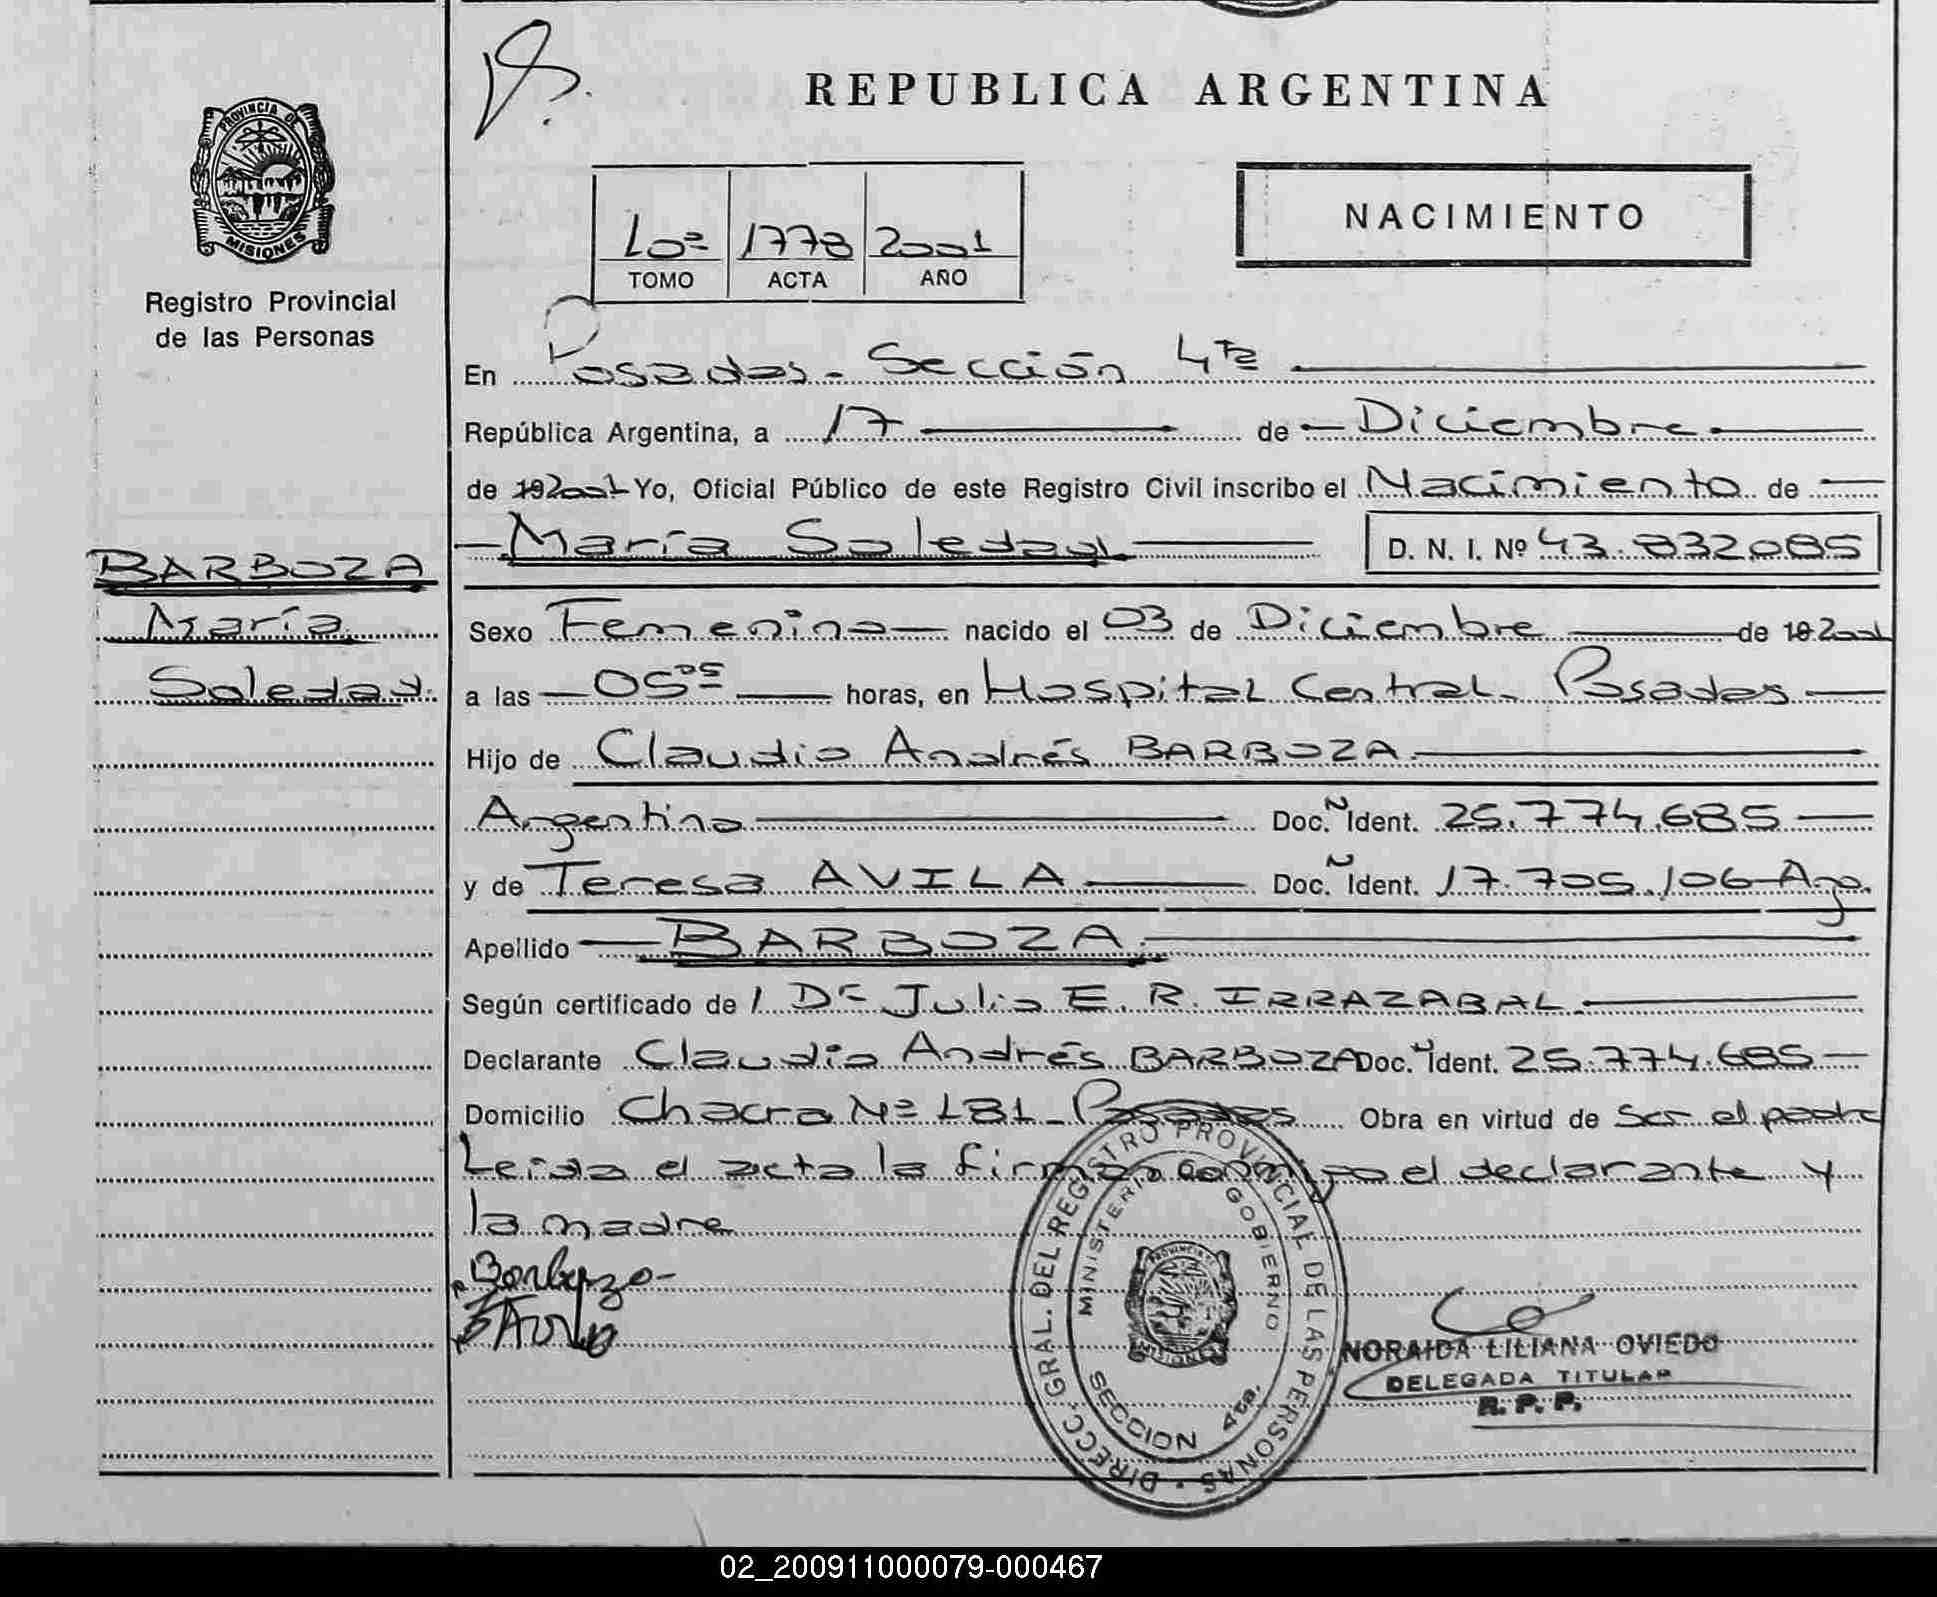 REPUBLICA ARGENTINA
PROVINCIA DE
MISIONES
Registro Provincial
de las Personas
NACIMIENTO
10º 1778 2001
TOMO ACTA AÑO
En Posadas - Sección 4ta
República Argentina, a 17 de Diciembre
de 19 2001 Yo, Oficial Público de este Registro Civil inscribo el Nacimiento de
María Soledad D. N. I. Nº 43.832.085
BARBOZA
María
Soledad.
Sexo Femenino nacido el 03 de Diciembre de 19 2001
a las 05 05 horas, en Hospital Central - Posadas
Hijo de Claudio Andrés BARBOZA
Argentino Doc. Ident. 25.774.685
y de Teresa AVILA Doc. Ident. 17.705.106 Arg.
Apellido BARBOZA.
Según certificado de l Dr Julio E. R. IRRAZABAL.
Declarante Claudio Andrés BARBOZA Doc. Ident. 25.774.685
Domicilio Chacra Nº 181 - Posadas Obra en virtud de Ser el padre
Leida el acta la firman conmigo el declarante y
la madre
Barboza
T Avila
DIRECC. GRAL. DEL REGISTRO PROVINCIAL DE LAS PERSONAS
MINISTERIO GOBIERNO
PROVINCIA
MISIONES
SECCION 4ta.
NORAIDA LILIANA OVIEDO
DELEGADA TITULAR
R. P. P.
02_200911000079-000467